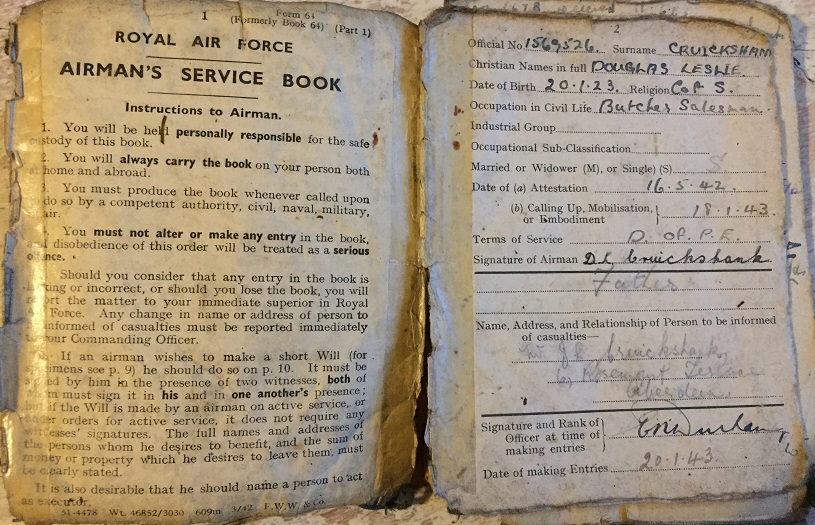 1
Form 64
(Formerly Book 64) (Part 1)
ROYAL AIR FORCE
AIRMAN'S SERVICE BOOK
Instructions to Airman.
1. You will be held personally responsible for the safe
custody of this book.
2. You will always carry the book on your person both
at home and abroad.
3. You must produce the book whenever called upon
to do so by a competent authority, civil, naval, military,
air.
You must not alter or make any entry in the book,
and disobedience of this order will be treated as a serious
offence.
Should you consider that any entry in the book is
or incorrect, or should you lose the book, you will
report the matter to your immediate superior in Royal
Force. Any change in name or address of person to
informed of casualties must be reported immediately
your Commanding Officer.
If an airman wishes to make a short Will (for
specimens see p. 9) he should do so on p. 10. It must be
signed by him in the presence of two witnesses, both of
whom must sign it in his and in one another's presence;
but if the Will is made by an airman on active service, or
under orders for active service, it does not require any
witnesses' signatures. The full names and addresses of
the persons whom he desires to benefit, and the sum of
money or property which he desires to leave them, must
be clearly stated.
It is also desirable that he should name a person to act
as executor.
51-4478 Wt. 46852/3030 609m 3/42 F.W.W. & Co.
2
Official No. 1569526. Surname CRUICKSHAN
Christian Names in full DOUGLAS LESLIE.
Date of Birth 20.1.23. Religion C of S.
Occupation in Civil Life Butcher Salesman.
Industrial Group
Occupational Sub-Classification
Married or Widower (M), or Single) (S) S
Date of (a) Attestation 16.5.42.
(b) Calling Up, Mobilisation, or Embodiment } 18.1.43.
Terms of Service D. of P.E.
Signature of Airman D L Cruickshank
Father
Name, Address, and Relationship of Person to be informed
of casualties—
Cruickshank,
Rosemount Terrace
Aberdeen.
Signature and Rank of
Officer at time of
making entries
Date of making Entries 20.1.43.